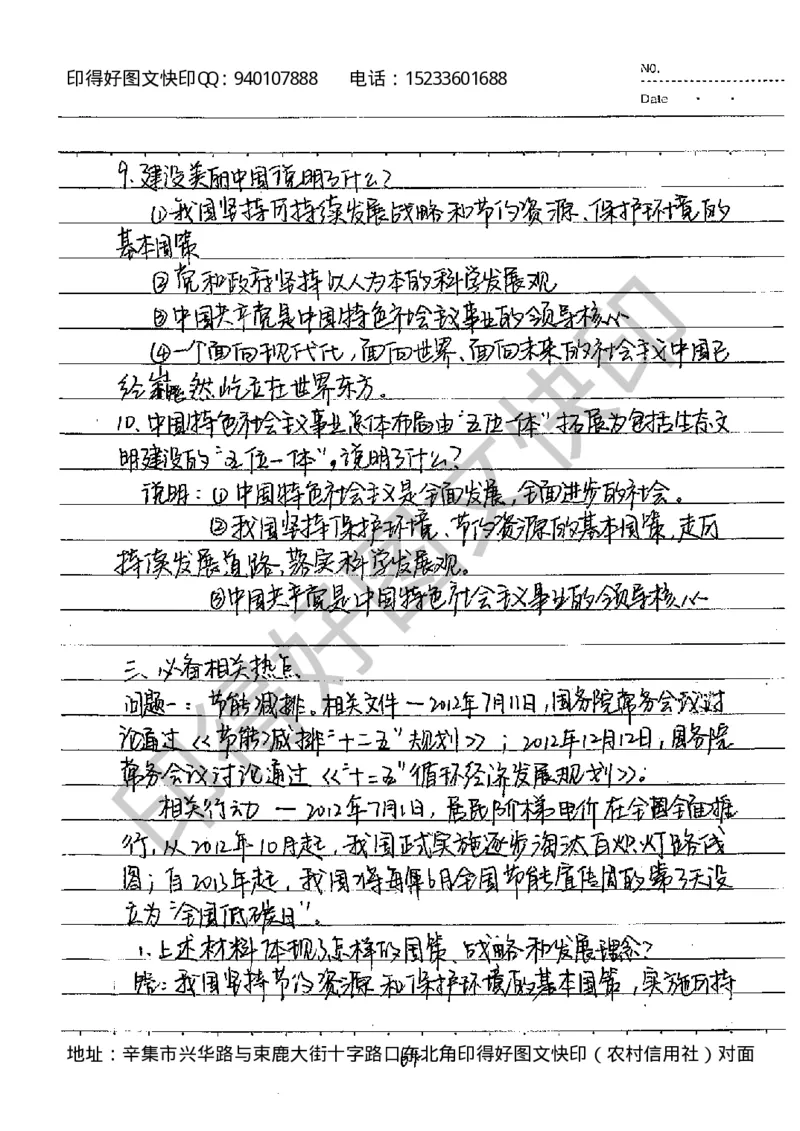 印得好图文快印QQ：940107888 电话：15233601688
No.
Date
9.建设美丽中国说明了什么？
①我国坚持可持续发展战略和节约资源、保护环境的
基本国策
②党和政府坚持以人为本的科学发展观
③中国共产党是中国特色社会主义事业的领导核心
④一个面向现代化,面向世界、面向未来的社会主义中国已
经巍然屹立在世界东方。
10、中国特色社会主义事业总体布局由"五位一体"拓展为包括生态文
明建设的"五位一体"。说明了什么？
说明：①中国特色社会主义是全面发展、全面进步的社会。
②我国坚持保护环境、节约资源的基本国策,走可
持续发展道路,落实科学发展观。
③中国共产党是中国特色社会主义事业的领导核心
三、必备相关热点、
问题一：节能减排。相关文件—2012年7月11日,国务院常务会议讨
论通过《节能减排"十二五"规划》；2012年12月12日,国务院
常务会议讨论通过《"十二五"循环经济发展规划》。
相关行动—2012年7月1日,居民阶梯电价在全国全面推
行,从2012年10月起,我国正式实施逐步淘汰白炽灯路线
图；自2013年起,我国将每年6月全国节能宣传周的第3天设
立为"全国低碳日"。
1.上述材料体现了怎样的国策、战略和发展理念？
答：我国坚持节约资源和保护环境的基本国策,实施可持
地址：辛集市兴华路与束鹿大街十字路口东北角印得好图文快印（农村信用社）对面
印得好图文快印